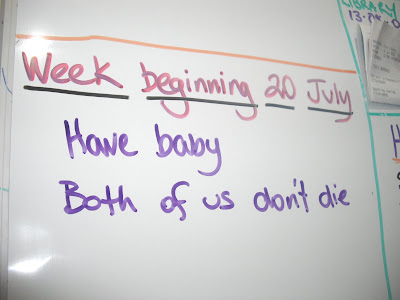 LIBRARY
Week beginning 20 July
Have baby
Both of us don't die